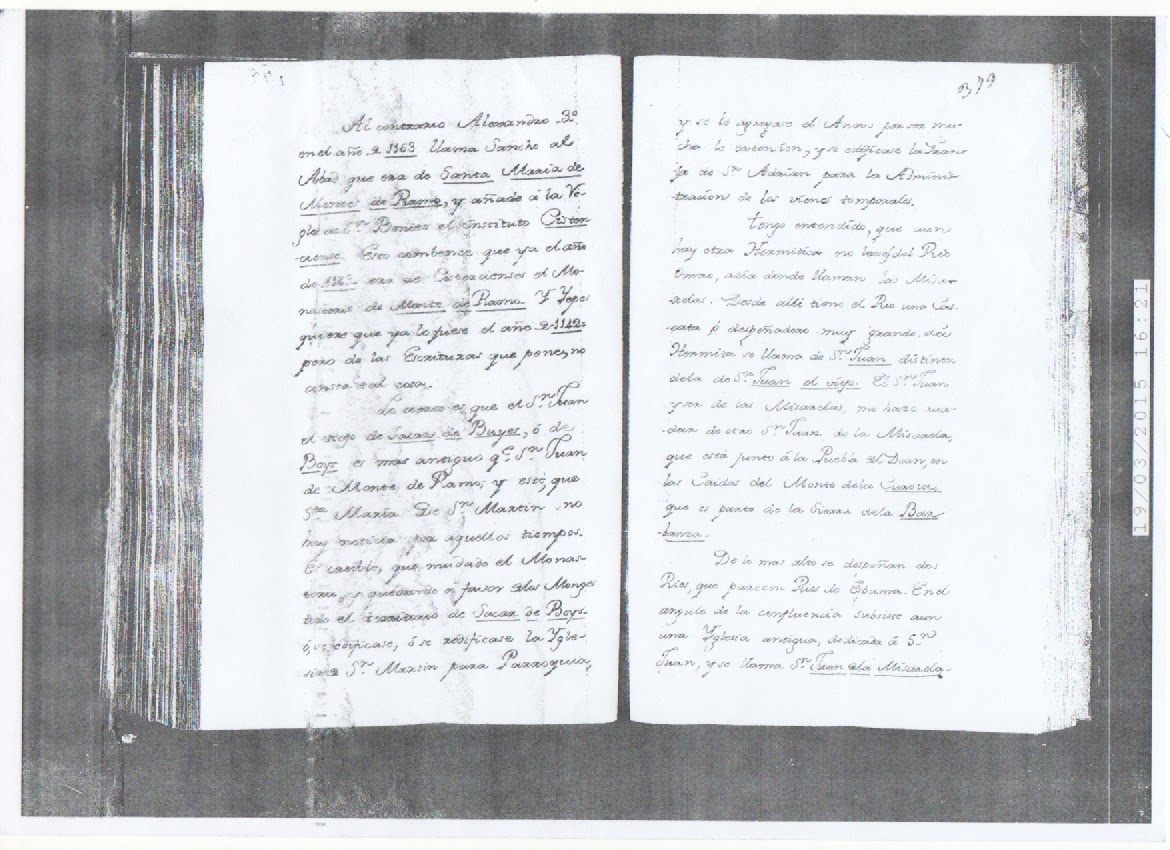 Al contrario Alexandro 3º
en el año 2 1163 llama Sancho al
Abad que era de Santa María de
de Ramo, y añade á la Re-
gla de Sn Benito el instituto Cister-
ciense. Esto combence que ya el año
de era de Cistercienses el Mo-
nasterio de Monte de Ramo Y Yepes
quiere que ya lo fuese el año 2 1142:
pero de las Escrituras que pone, no
consta
Lo cierto es, que el Sn Juan
el viejo de Sacar de Buyes, ó de
Boys es mas antiguo q.e Sn Juan
de Monte de Ramo; y este, que
Sta María. De Sn Martin no
hay noticia por aquellos tiempos.
Es creible, que mudado el Monas-
terio, y quedando á favor elos Monges
todo el territorio de Sacar de Boys
ó se edificase, ó se redificase la Ygle-
sia Sn Martin para Parroquia,
379
y se le agregase el Anexo por ser mu-
cha la extension, y se edificase la Gran-
ja de Sn Adrian para la Adminis-
tracion de los vienes temporales.
Tengo entendido, que aun
hay otra Hermitica no lexos del Rio
acia donde llaman las Misar-
zelas. Desde allí tiene el Rio una Cas-
cata ó despeñadero muy grande. La
Hermita se llama de Sn Juan distinta
dela de Sn Juan el viejo. El Sn Juan
de las Mizarelas, me hace
de otro Sn Juan de la Mizarela,
que está junto á la Puebla el Dean, en
las Caidas del Monte dela Curota,
que es parte de la Sierra dela Bar-
banza.
De lo mas alto se despeñan dos
Rios, que parecen Rios de Espuma. En el
angulo de la confluencia subsiste aun
una Yglesia antigua, dedicada á Sn
Juan, y se llama Sn Juan ela Mizarela,
19/03/2015 16:21